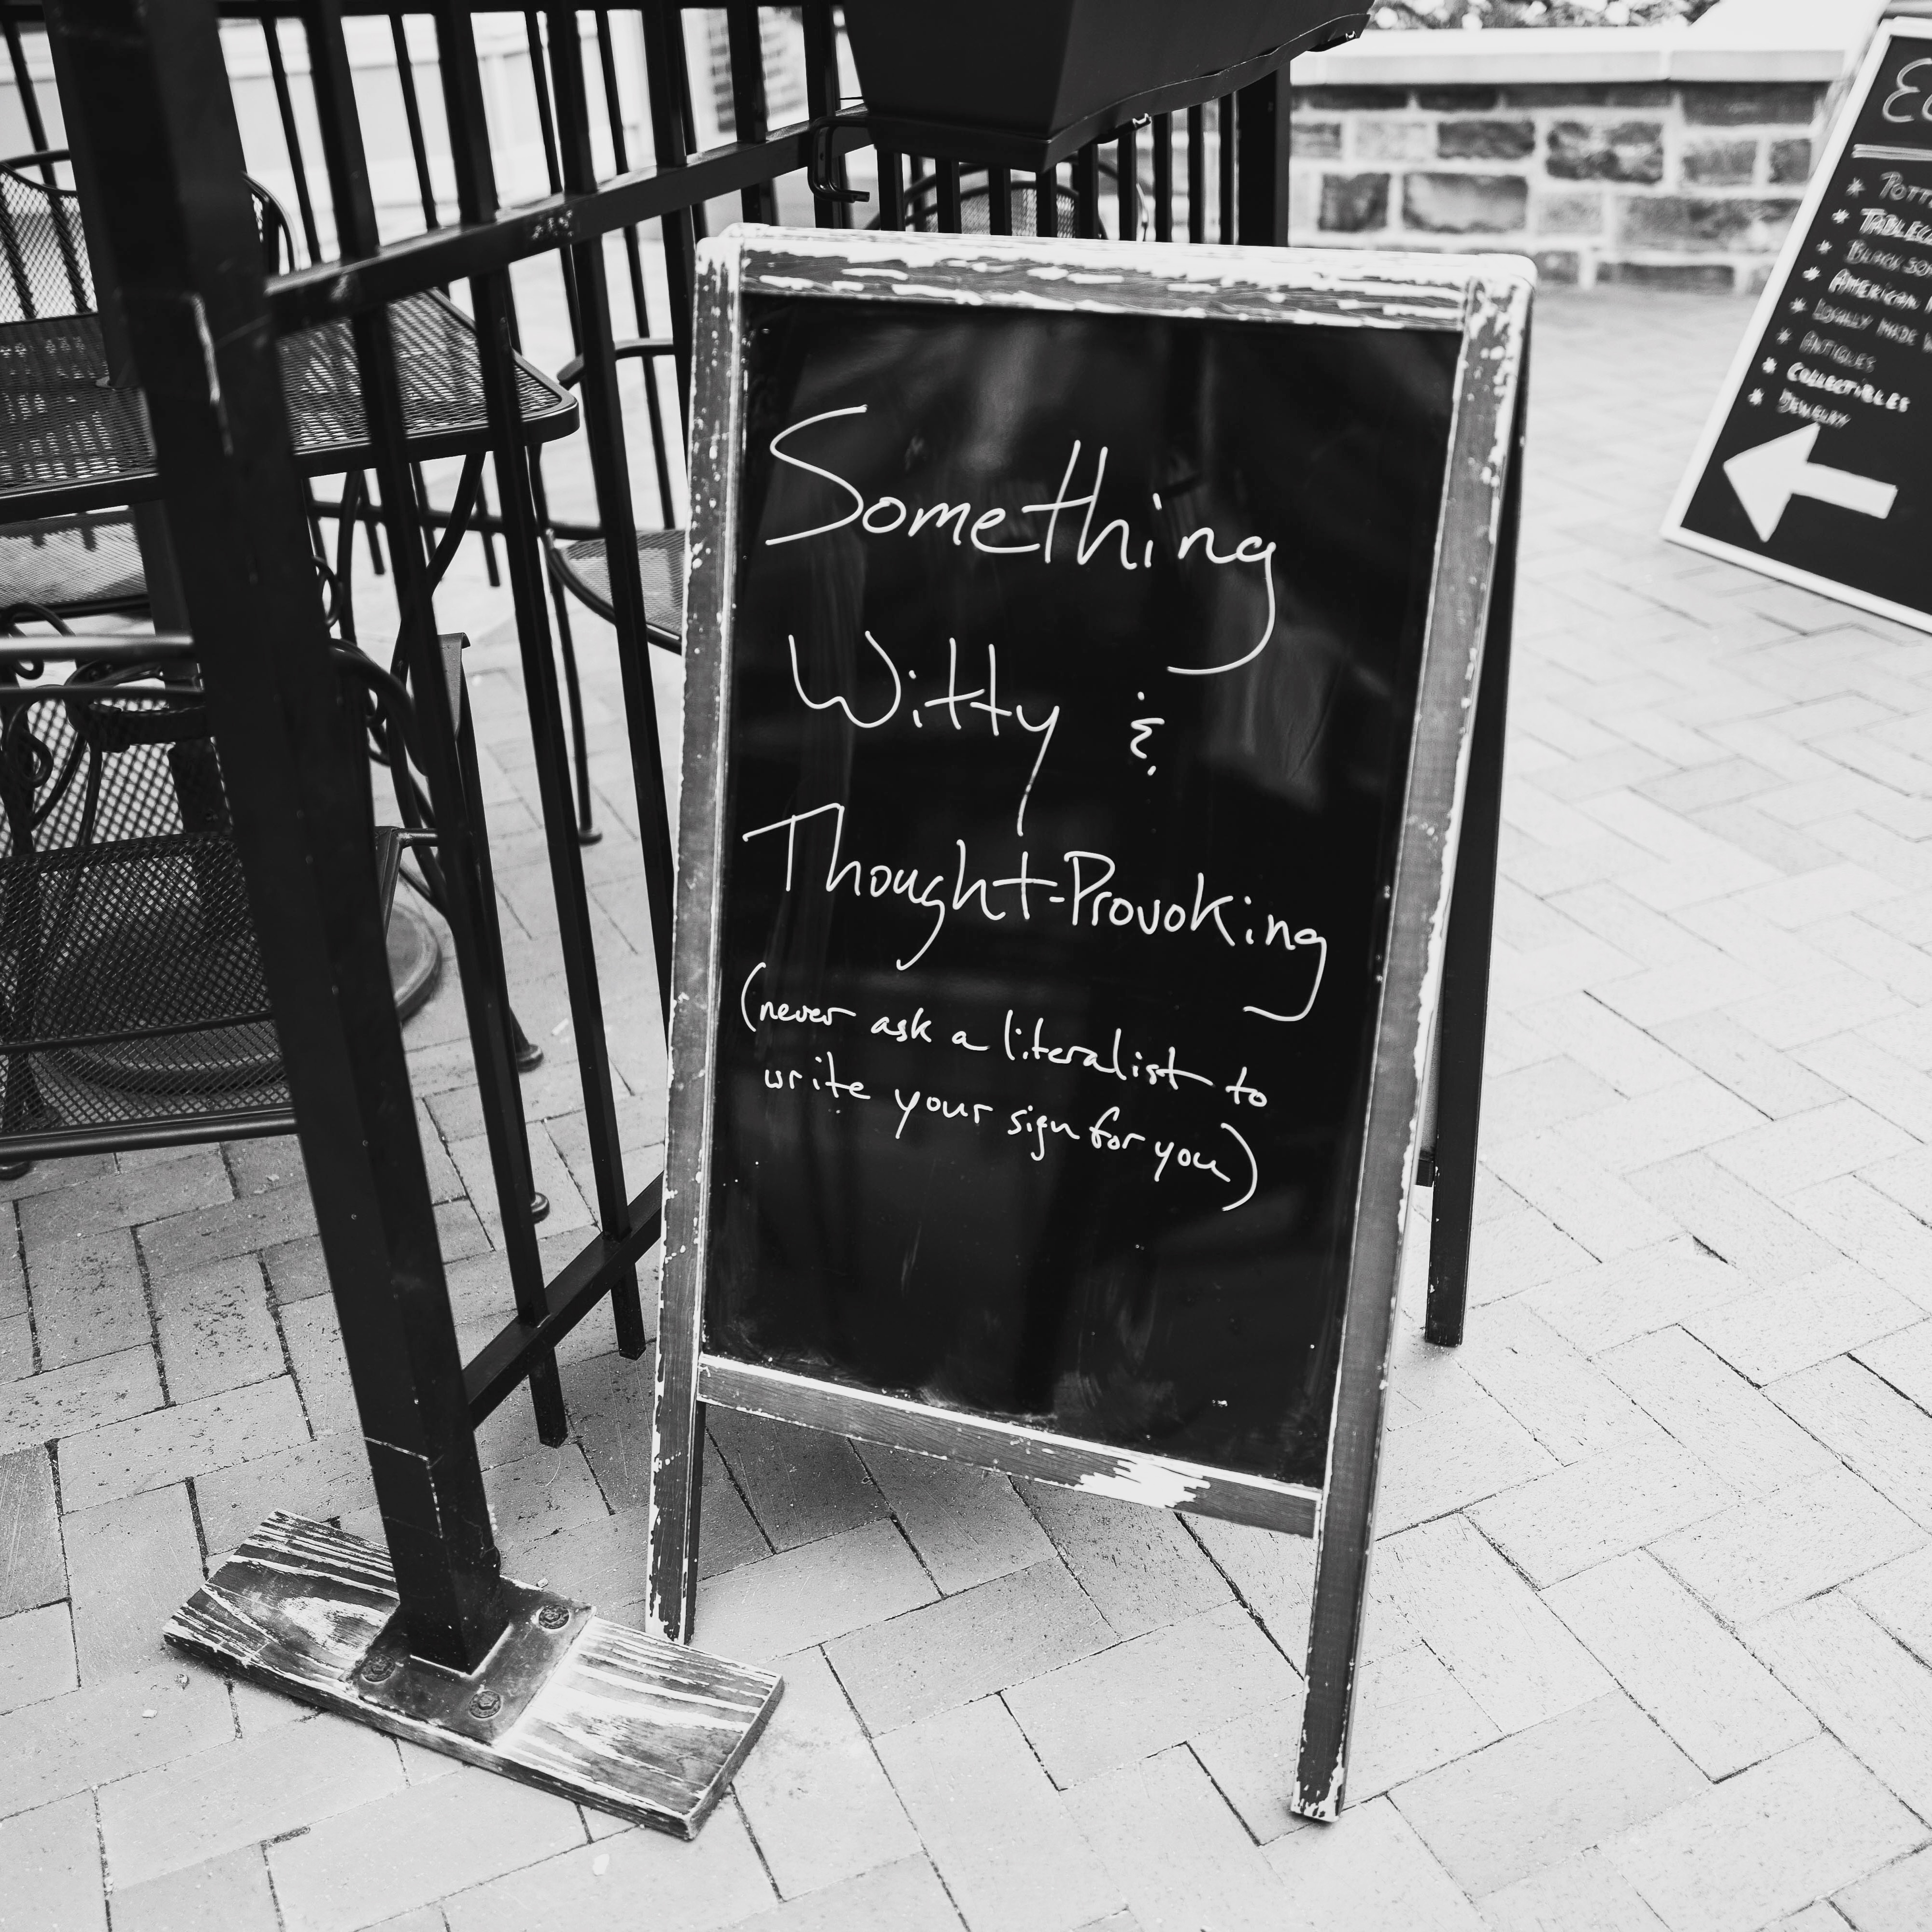 Something
Witty &
Thought-Provoking
(never ask a literalist to
write your sign for you)
* TABLEC
* BLACK
* AMERICAN
* LOCALLY MADE
* ANTIQUES
* COLLECTIBLES
* JEWELRY